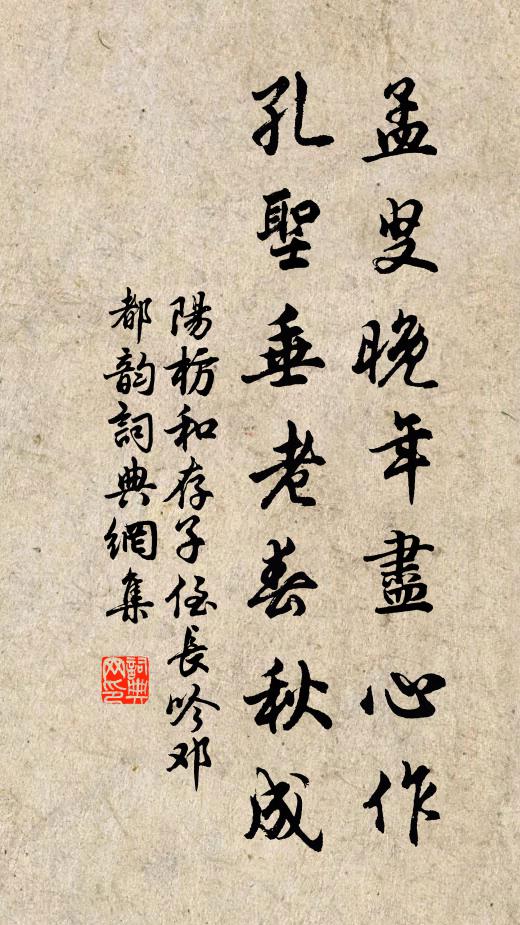 孟叟晚年盡心作
孔聖垂老春秋成
陽枋和存子侄長吟邓
都韵詞典網集
詞典网印